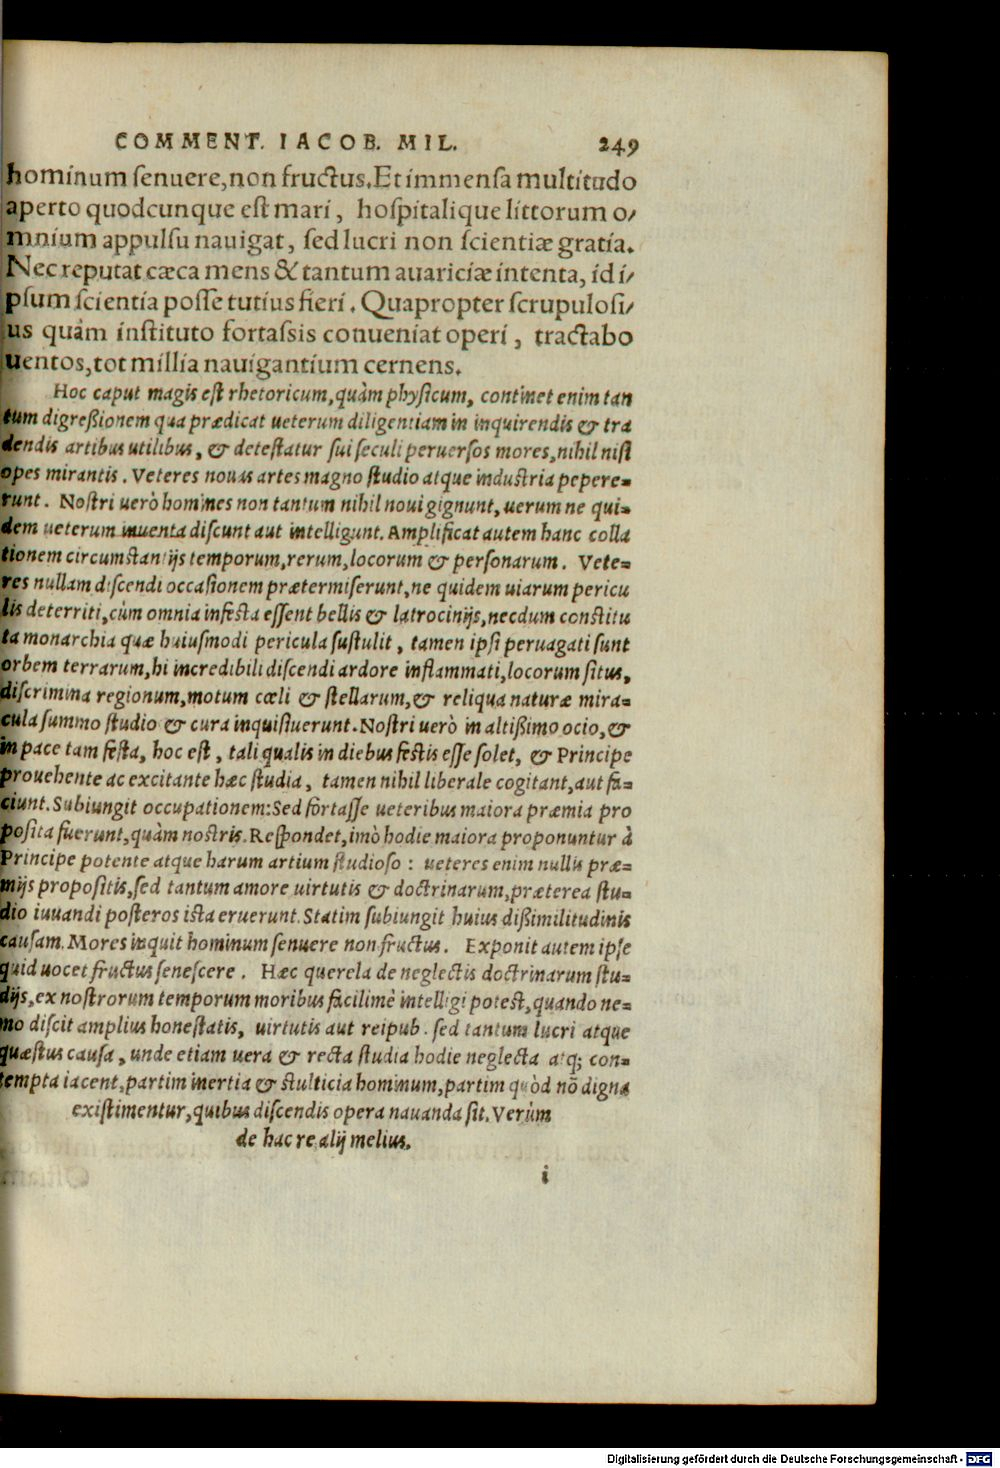 COMMENT. IACOB. MIL. 249
hominum ſenuere, non fructus. Et immenſa multitudo
aperto quodcunque eſt mari, hoſpitalique littorum o/
mnium appulſu nauigat, ſed lucri non ſcientiæ gratia.
Nec reputat cæca mens & tantum auariciæ intenta, id i/
pſum ſcientia poſſe tutius fieri. Quapropter ſcrupuloſi/
us quàm inſtituto fortaſsis conueniat operi, tractabo
uentos, tot millia nauigantium cernens.
Hoc caput magis eſt rhetoricum, quàm phyſicum, continet enim tan
tum digreßionem qua prædicat ueterum diligentiam in inquirendis & tra
dendis artibus utilibus, & deteſtatur ſui ſeculi peruerſos mores, nihil niſi
opes mirantis. Veteres nouas artes magno ſtudio atque induſtria pepere-
runt. Noſtri uerò homines non tantum nihil noui gignunt, uerum ne qui-
dem ueterum inuenta diſcunt aut intelligunt. Amplificat autem hanc colla
tionem circumſtantijs temporum, rerum, locorum & perſonarum. Vete-
res nullam diſcendi occaſionem prætermiſerunt, ne quidem uiarum pericu
lis deterriti, cùm omnia infeſta eſſent bellis & latrocinijs, necdum conſtitu
ta monarchia quæ huiuſmodi pericula ſuſtulit, tamen ipſi peruagati ſunt
orbem terrarum, hi incredibili diſcendi ardore inflammati, locorum ſitus,
diſcrimina regionum, motum cœli & ſtellarum, & reliqua naturæ mira-
cula ſummo ſtudio & cura inquiſiuerunt. Noſtri uerò in altißimo ocio, &
in pace tam feſta, hoc eſt, tali qualis in diebus feſtis eſſe ſolet, & Principe
prouehente ac excitante hæc ſtudia, tamen nihil liberale cogitant, aut fa-
ciunt. Subiungit occupationem: Sed fortaſſe ueteribus maiora præmia pro
poſita fuerunt, quàm noſtris. Reſpondet, imò hodie maiora proponuntur à
Principe potente atque harum artium ſtudioſo: ueteres enim nullis præ-
mijs propoſitis, ſed tantum amore uirtutis & doctrinarum, præterea ſtu-
dio iuuandi poſteros iſta eruerunt. Statim ſubiungit huius dißimilitudinis
cauſam. Mores inquit hominum ſenuere non fructus. Exponit autem ipſe
quid uocet fructus ſeneſcere. Hæc querela de neglectis doctrinarum ſtu-
dijs, ex noſtrorum temporum moribus facilimè intelligi poteſt, quando ne-
mo diſcit amplius honeſtatis, uirtutis aut reipub. ſed tantum lucri atque
quæſtus cauſa, unde etiam uera & recta ſtudia hodie neglecta atq; con-
tempta iacent, partim inertia & ſtulticia hominum, partim quòd nõ digna
exiſtimentur, quibus diſcendis opera nauanda ſit. Verùm
de hac re alij melius.
i
Digitalisierung gefördert durch die Deutsche Forschungsgemeinschaft - DFG